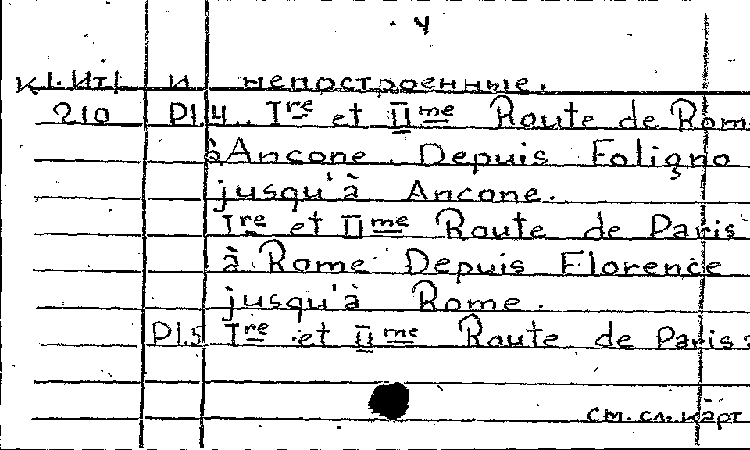 4
К I. Ит I и непостроенные.
210 Pl.4. Ire et IIme Route de Rom
à Ancone. Depuis Foligno
jusqu'à Ancone.
Ire et IIme Route de Paris
à Rome Depuis Florence
jusqu'à Rome.
Pl.5 Ire et IIme Route de Paris à
см. сл. карт